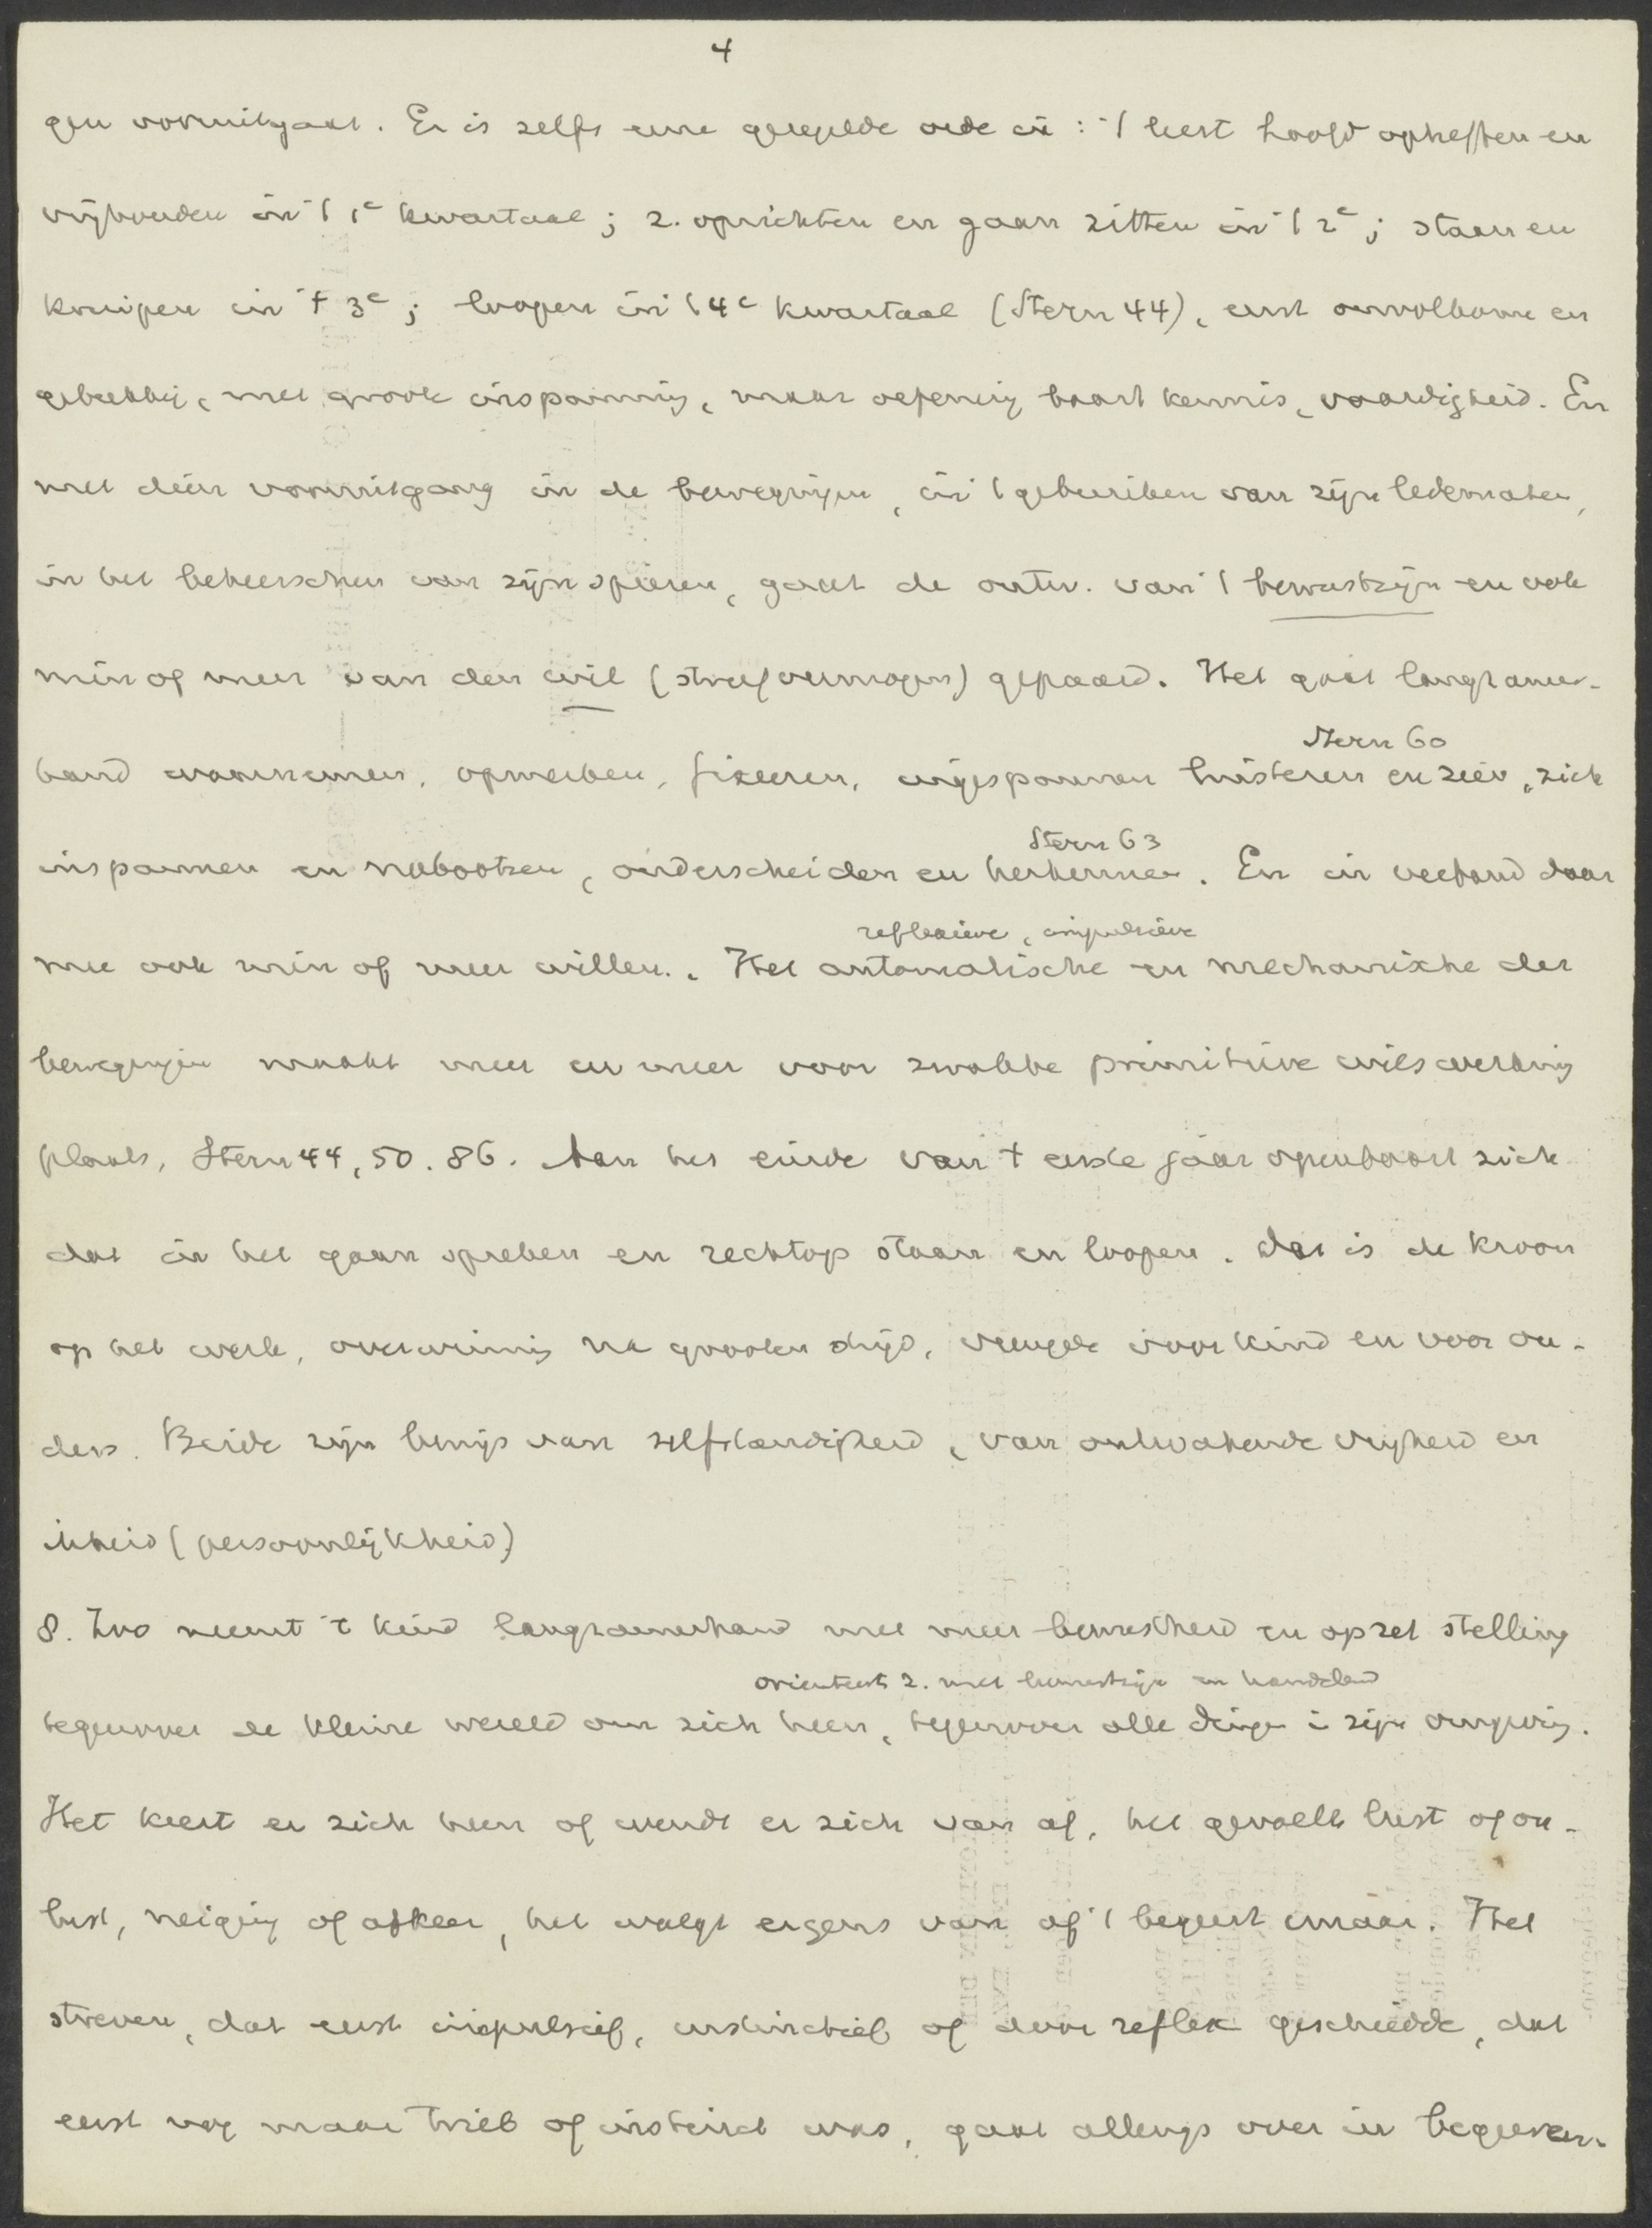 4
gen vooruitgaat. Er is zelfs eene geregelde orde in: 't leert hoofd opheffen en
vrijhouden in 't 1e kwartaal; 2. oprichten en gaan zitten in 't 2e; staan en
kruipen in 't 3e; loopen in 't 4e kwartaal (Stern 44), eerst onvolkomen en
gebrekkig, met groote inspanning, maar oefening baart kennis, vaardigheid. En
met dien vooruitgang in de bewegingen, in 't gebruiken van zijn ledematen,
in het beheerschen van zijn spieren, gaat de ontw. van 't bewustzijn en ook
min of meer van den wil (streefvermogen) gepaard. Het gaat langzamer-
Stern 60
hand waarnemen, opmerken, fixeeren, ingespannen luisteren en zien, zich
Stern 63
inspannen en nabootsen, onderscheiden en herkennen. En in verband daar
reflexieve, impulsieve
mee ook min of meer willen. Het automatische en mechanische der
bewegingen maakt meer en meer voor zwakke primitieve wilswerking
plaats, Stern 44, 50. 86. Aan het einde van 't eerste jaar openbaart zich
dat in het gaan spreken en rechtop staan en loopen. Dat is de kroon
op het werk, overwinning na grooten strijd, vreugde voor kind en voor ou-
ders. Beide zijn bewijs van zelfstandigheid, van ontwakende vrijheid en
ikheid (persoonlijkheid)
8. Zoo neemt 't kind langzamerhand met meer bewustheid en opzet stelling
orienteert z. met bewustzijn en handelend
tegenover de kleine wereld om zich heen, tegenover alle dingen in zijn omgeving.
Het keert er zich heen of wendt er zich van af, het gevoelt lust of on-
lust, neiging of afkeer, het walgt ergens van of 't begeert ernaar. Het
streven, dat eerst impulsief, instinctief of door reflex geschiedde, dat
eerst nog maar Trieb of instinct was, gaat allengs over in begeeren.